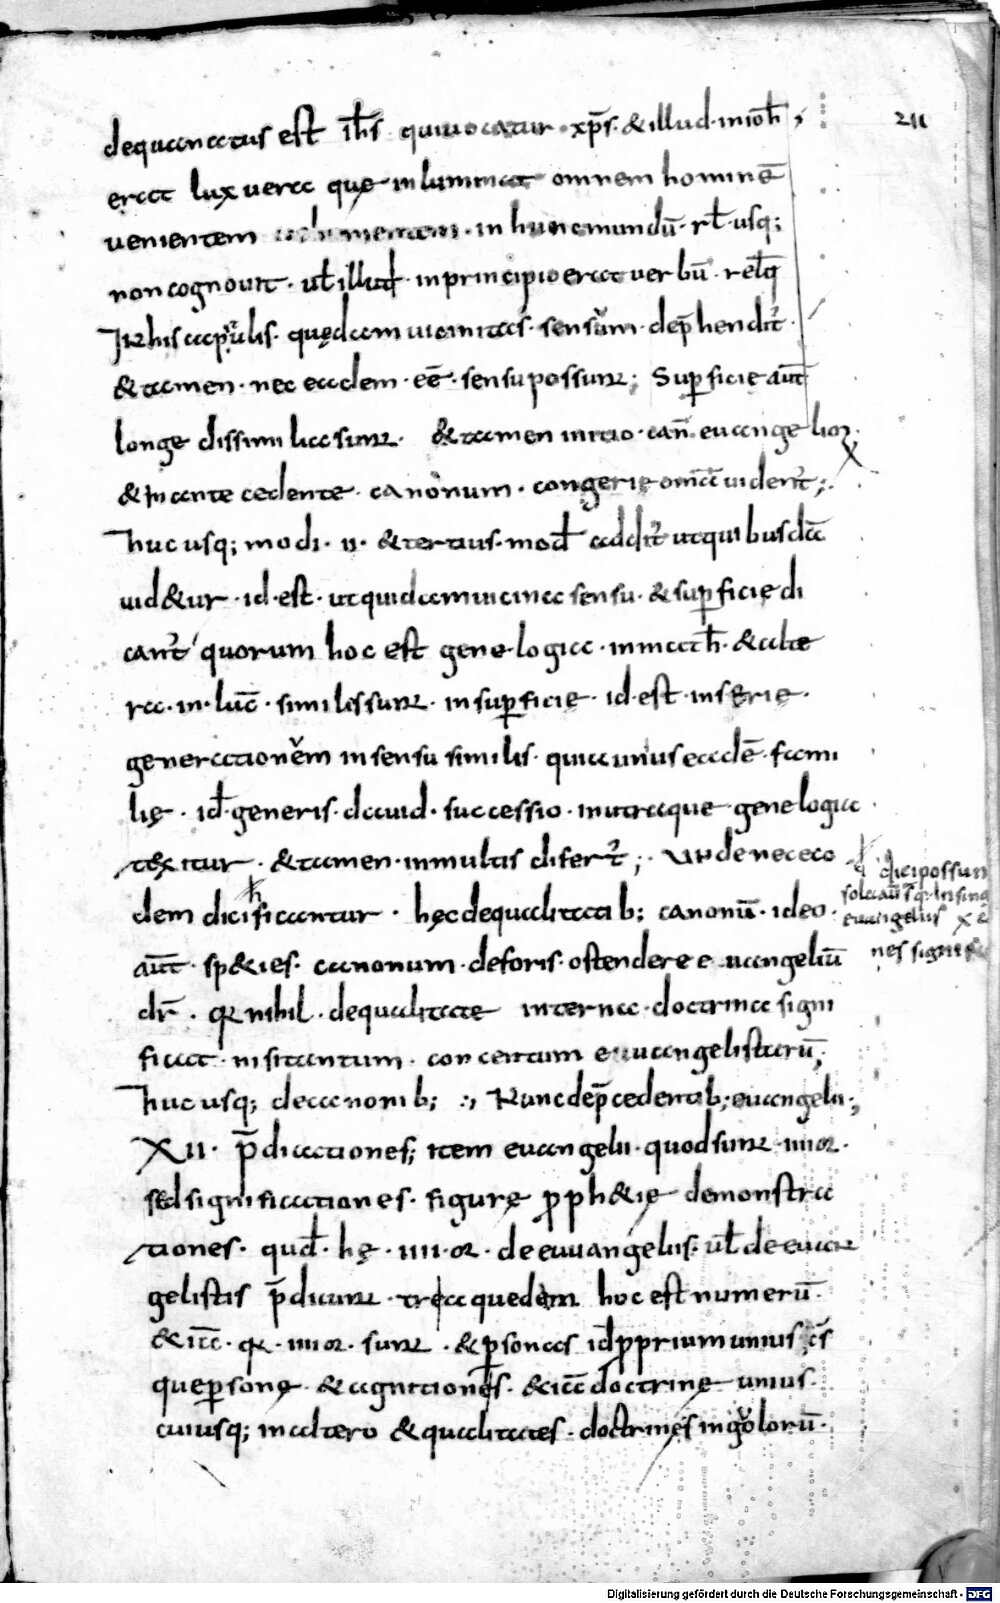 211
dequa natus est ih̅s qui uocatur xp̅s & illud in ioh̅
erat lux uera quę inluminat omnem hominē
uenientem in hunc mundū· rł usq;
non cognouit · uł illud· in principio erat uerbū · relq̅
In his capłis· quędam uicinitas· sensuum· dep̅hendit̉
& tamen · nec eadem · eē · sensu possunt; Superficie aūt
longe dissimilia sunt· & tamen initio · can̅ euangelior̅·
& in ante cedente · canonum · congerie om̅ia uident̉;·
huc usq; modi · ii · & tertius· mod̅ addit̉ ut quibusdā
uid&ur · id · est · ut quidam uicina sensu · & superficie di
cant̉ quorum hoc est genelogia · in math̅ · & alte
ra · in · luc̅ · similes sunt · in superficie · id · est · in serie ·
generationem in sensu similis · quia unius eadē · fami
lię · id̅ · generis · dauid · successio · in utraque · genelogia ·
texitur · & tamen · in multis difert̉ ;· Unde nec eo
dem dici ficantur · hęc de qualitatib; canonū · ideo ·
aūt · sp&ies · canonum · deforis · ostendere euangeliū
dr̅ · qr nihil · de qualitate interna · doctrina signi
ficat · nisi tantum · concentum euuangelistarū;
huc usq; de canonib; :, Nunc dep̅cedentib; euangelii ·;
XII · p̅dicationes; item euangelii · quod sunt · iiiior ·
sed significationes · figurę prph&ię demonstra
tiones · qud̅ · hę · iiii · or · de euuangeliis· uł de euan
gelistis p̅dicunt · tria quedem hoc est numerū ·
& itā · qr · iiiior · sunt · & personas id̅ pprium unius c̅s
que personę · & agnitiones · & iā doctrinę unius ·
cuiusq; in altero & qualitates · doctrinę singulorū ·
dici possun
euangeliis
nes signi